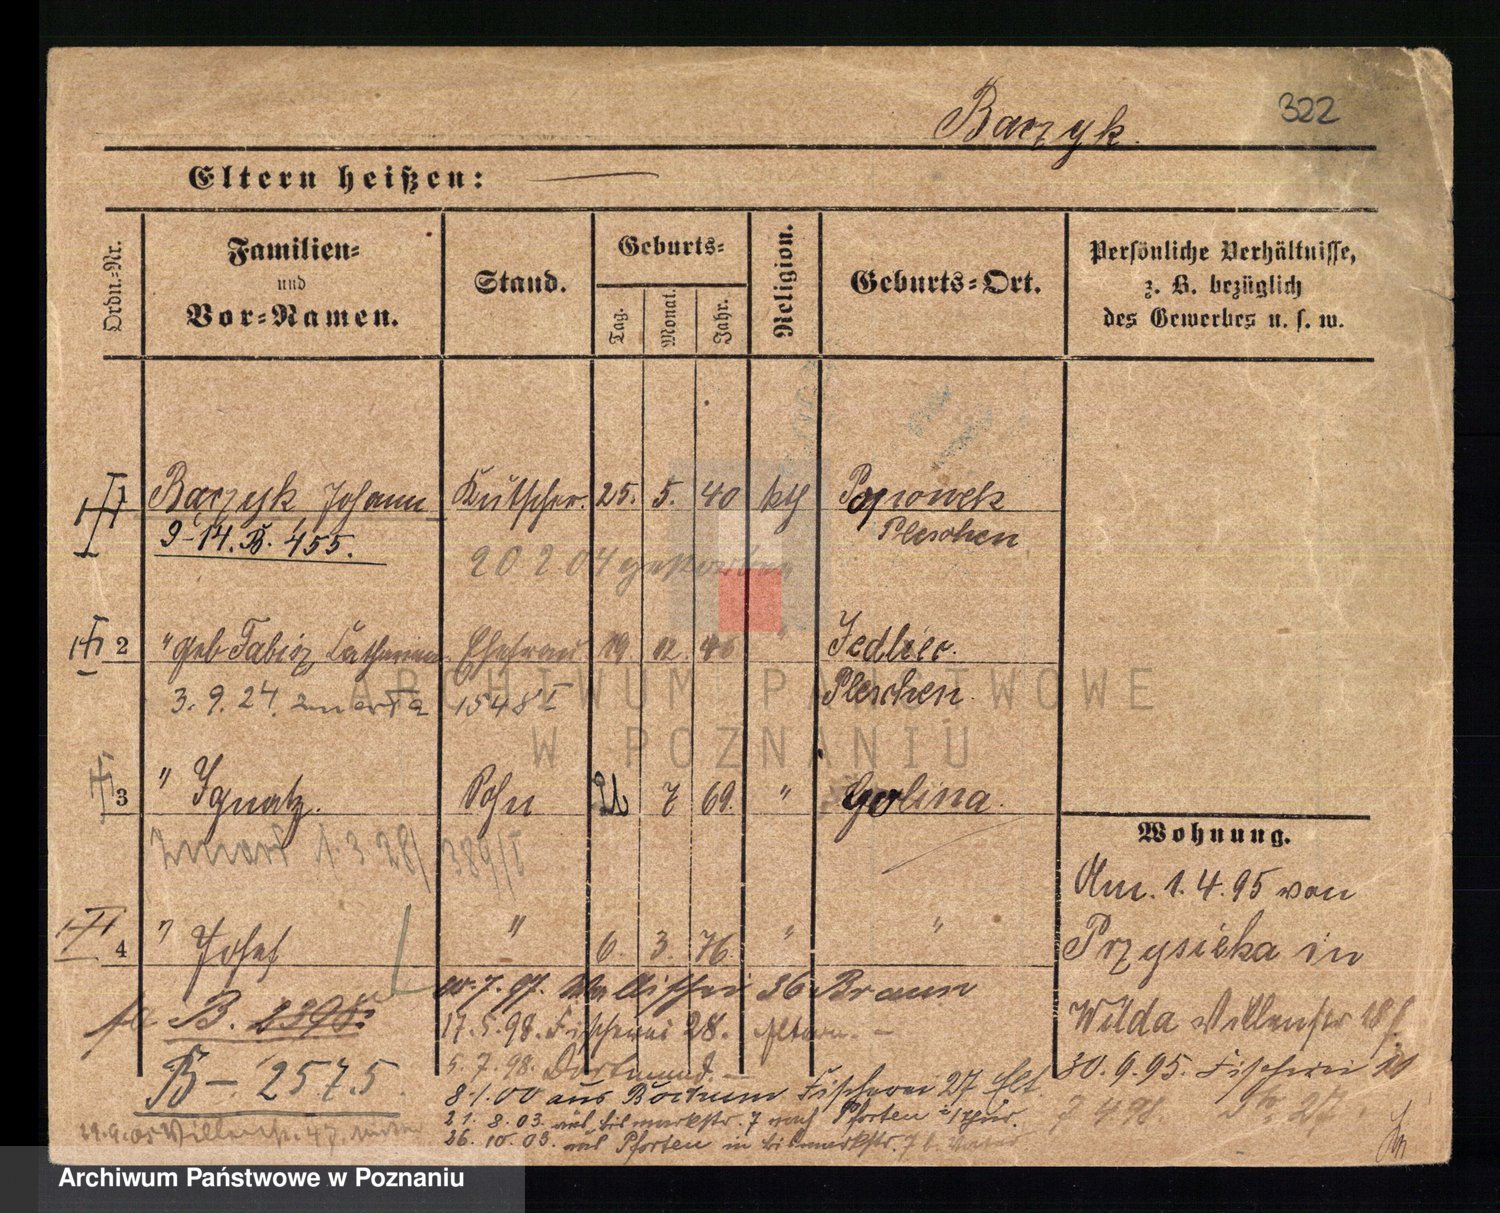 322
Baczyk.
Eltern heißen:
Ordn.-Nr.
Familien-
und
Vor-Namen.
Stand.
Geburts-
Tag.
Monat.
Jahr.
Religion.
Geburts-Ort.
Persönliche Verhältnisse,
z. B. bezüglich
des Gewerbes u. s. w.
1 Baczyk Johann Kutscher. 25. 5. 40 kth Popowek
9-14. B. 455. Pleschen
20 2 04 gestorben
2 " geb Fabisz, Catharina Ehefrau 19. 12. 46 " Jedlec.
3. 9. 24. zmarła 1548 I Pleschen.
3 " Ignatz. Sohn 21 7 69. " Golina.
Zmarł 1. 3 28/ 389/I
4 " Josef " 6. 3. 76. " "
7. 97. Wallischei 36 Braun
B. 2398
17. 5. 98. Fischerei 28. Eltern. —
5. 7. 98. Dortmund. —
B — 2575
8. 1. 00 aus Bochum Fischerei 27 Elt.
21. 8. 03. aus Bismarckstr. 7 nach Pforten
26. 10. 03. aus Pforten in Bismarckstr. 7
Villenstr. 47.
Wohnung.
Am. 1. 4. 95 von
Przysieka in
Wilda Villenstr 18
30. 9. 95. Fischerei
7 4 96 27.
ARCHIWUM PAŃSTWOWE
W POZNANIU
Archiwum Państwowe w Poznaniu